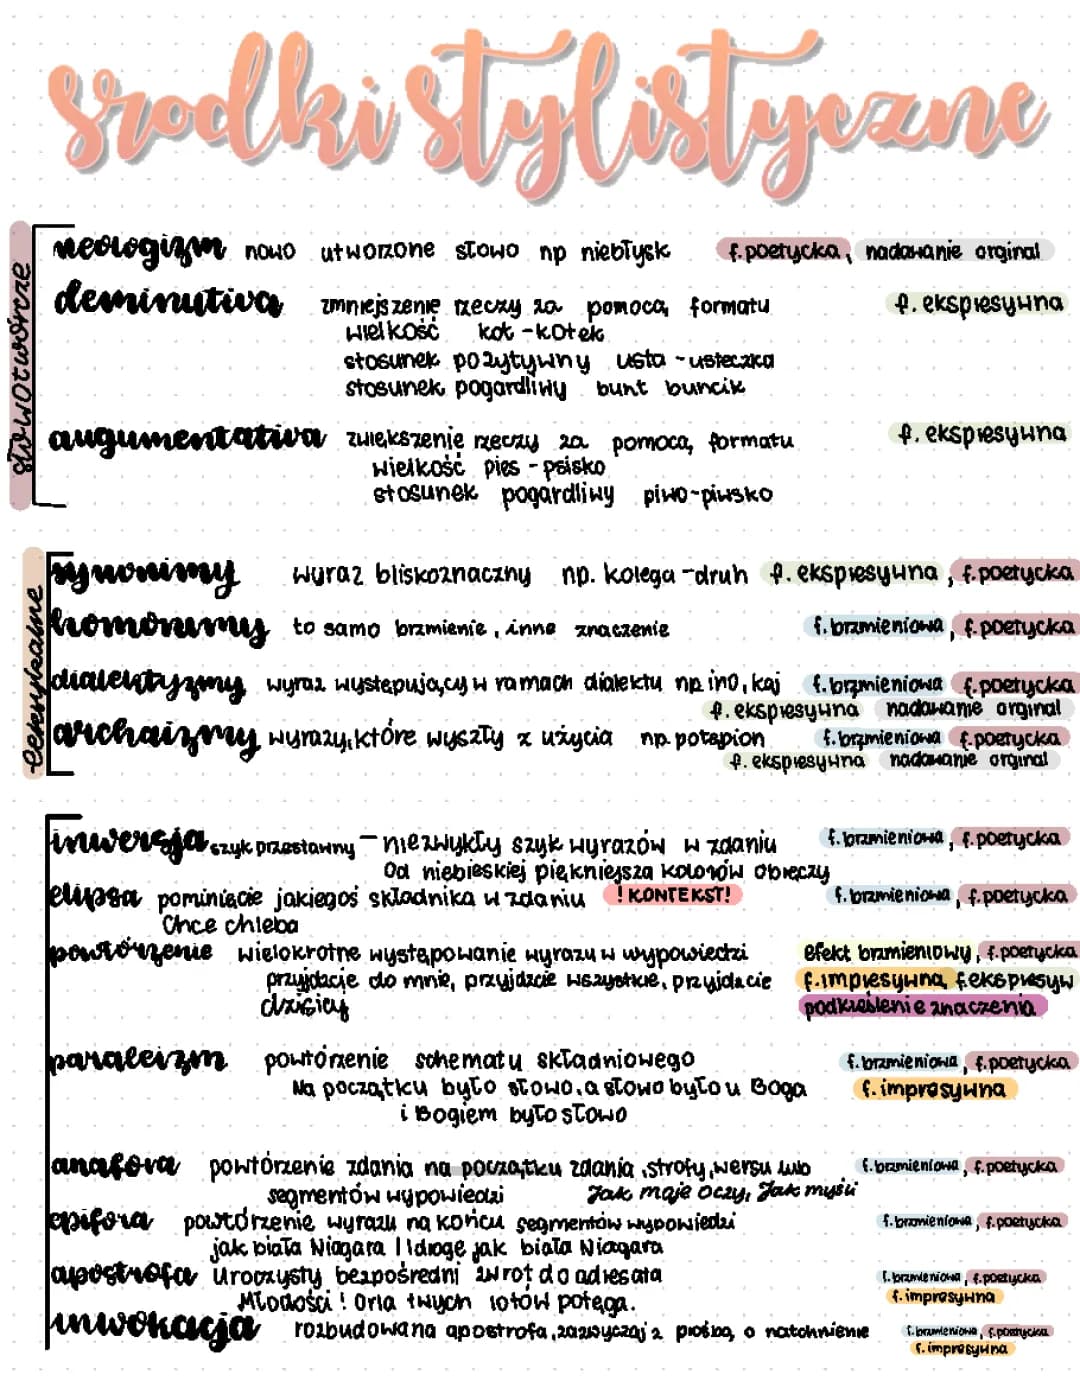 środki stylistyczne
słowotwórcze
neologizm nowo utworzone słowo np niebłysk f.poetycka, nadawanie orginal
deminutiva zmniejszenie rzeczy za pomocą formatu f. ekspresywna
wielkość kot - kotek
stosunek pozytywny usta - usteczka
stosunek pogardliwy bunt buncik
augumentativa zwiększenie rzeczy za pomocą formatu f. ekspresywna
wielkość pies - psisko
stosunek pogardliwy piwo-piwsko
leksykalne
synonimy wyraz bliskoznaczny np. kolega - druh f. ekspresywna, f.poetycka
homonimy to samo brzmienie, inne znaczenie f.brzmieniowa, f.poetycka
dialektyzmy wyraz występujący w ramach dialektu np ino, kaj f.brzmieniowa f.poetycka
f. ekspresywna nadawanie orginal
archaizmy wyrazy, które wyszły z użycia np. potapion f.brzmieniowa f.poetycka
f. ekspresywna nadawanie orginal
inwersja szyk przestawny - niezwykły szyk wyrazów w zdaniu f.brzmieniowa, f.poetycka
Od niebieskiej piękniejsza kolorów obręczy
elipsa pominięcie jakiegoś składnika w zdaniu ! KONTEKST! f.brzmieniowa, f.poetycka
Chce chleba
powtórzenie wielokrotne występowanie wyrazu w wypowiedzi efekt brzmieniowy, f.poetycka
przyjdźcie do mnie, przyjdźcie wszystkie, przyjdźcie f.impresywna, f.ekspresyw
dzisiaj podkreślenie znaczenia
paraleizm powtórzenie schematu składniowego f.brzmieniowa, f.poetycka
Na początku było słowo, a słowo było u Boga f.impresywna
i Bogiem było słowo
anafora powtórzenie zdania na początku zdania, strofy, wersu lub f.brzmieniowa, f.poetycka
segmentów wypowiedzi Jak moje oczy, Jak myśli
epifora powtórzenie wyrazu na końcu segmentów wypowiedzi f.brzmieniowa, f.poetycka
jak biała Niagara I Idrogę jak biała Niagara
apostrofa Uroczysty bezpośredni zwrot do adresata f.brzmieniowa, f.poetycka
Młodości! Orla twych lotów potęga. f.impresywna
inwokacja rozbudowana apostrofa, zazwyczaj z prośbą, o natchnienie f.brzmieniowa, f.poetycka
f.impresywna